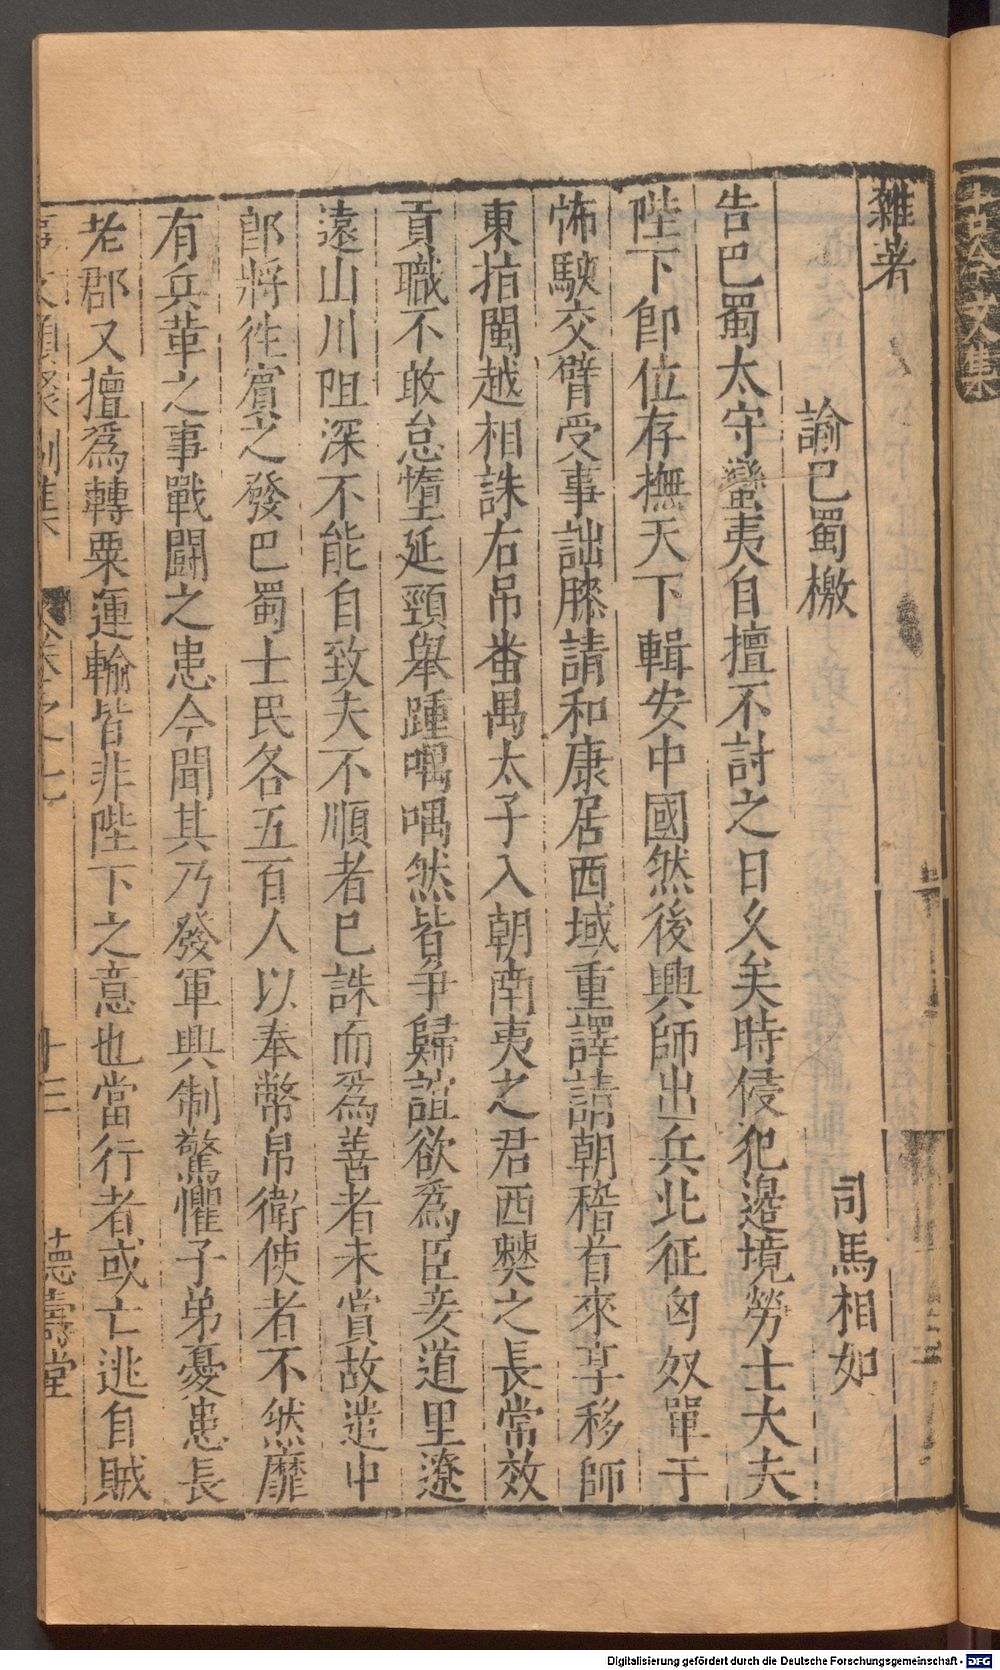 雜著
諭巴蜀檄
司馬相如
告巴蜀太守蠻夷自擅不討之日久矣時侵犯邉境勞士大夫
陛下卽位存撫天下輯安中國然後興師出兵北征匈奴單于
怖駭交臂受事詘膝請和康居西域重譯請朝稽首來享移師
東指閩越相誅右吊畨禺太子入朝南夷之君西僰之長常效
貢職不敢怠惰延頸舉踵喁喁然皆爭歸誼欲爲臣妾道里遼
遠山川阻深不能自致夫不順者已誅而爲善者未賞故遣中
郎將徃賓之發巴蜀士民各五百人以奉幣帛衛使者不然靡
有兵革之事戰鬬之患今聞其乃發軍興制驚懼子弟憂患長
老郡又擅爲轉粟運輸皆非陛下之意也當行者或亡逃自賊
事文類聚別集
卷之七
十三
德壽堂
Digitalisierung gefördert durch die Deutsche Forschungsgemeinschaft - DFG